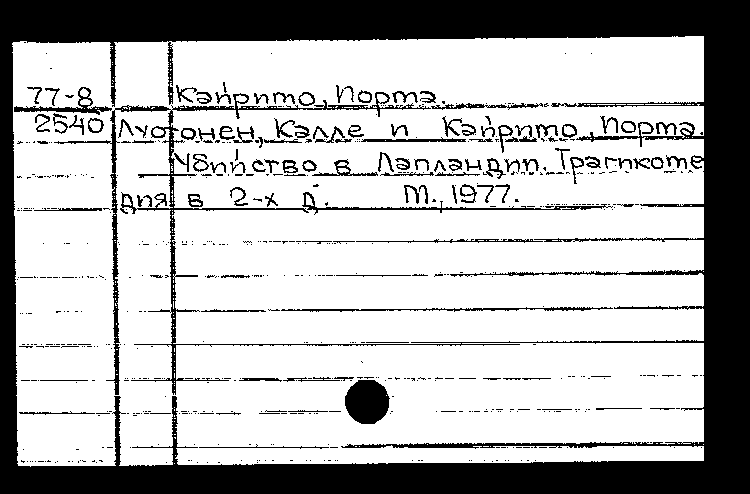 77-8 Кайримо, Йорма.
2540 Луотонен, Калле и Кайримо, Йорма.
Убийство в Лапландии. Трагикоме
дия в 2-х д. М., 1977.